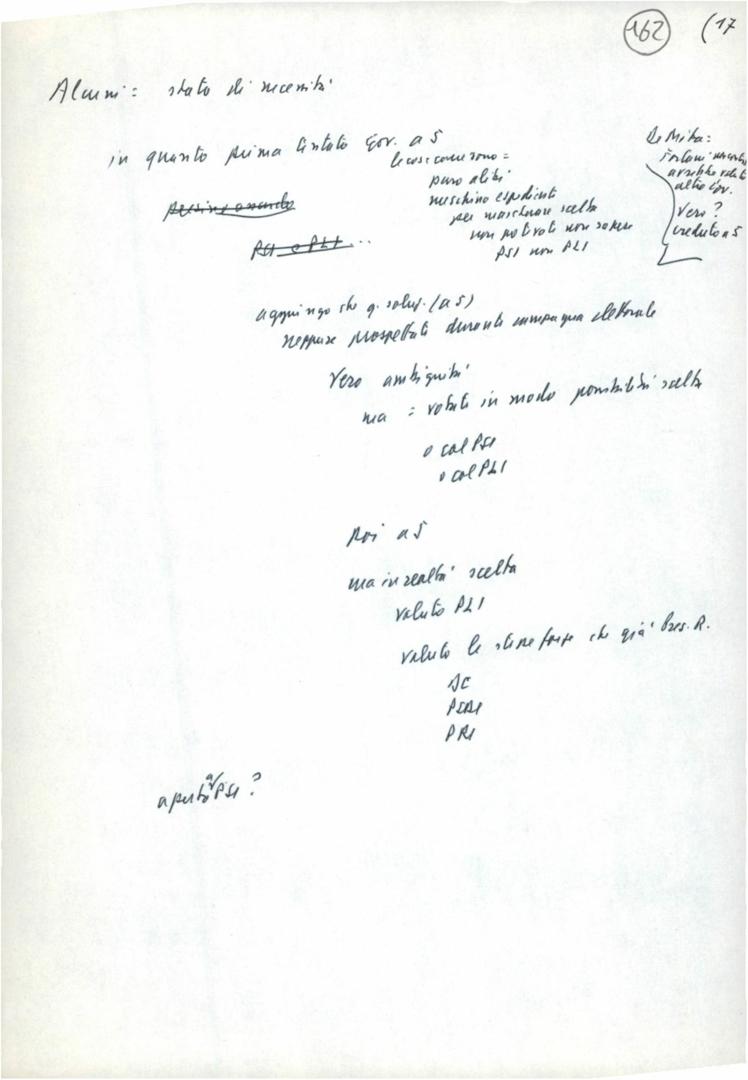 162 (17
Alcuni = stato di necessità
in quanto prima tentato Gov. a 5
le cose come sono =
puro alibi
meschino espediente
per mascherare scelta
non potrati non sapere
PSI non PLI
De Mita:
altro Gov.
Vero?
creduto a 5
persino quando
PSI e PLI...
aggiungo che q. soluz. (a 5)
neppure prospettati durante campagna elettorale
Vero ambiguità
ma = voluti in modo possibilità scelta
o col PSI
o col PLI
poi a 5
ma in realtà scelta
voluto PLI
voluto le stesse forze che già Pres. R.
DC
PSDI
PRI
aperto a PSI?